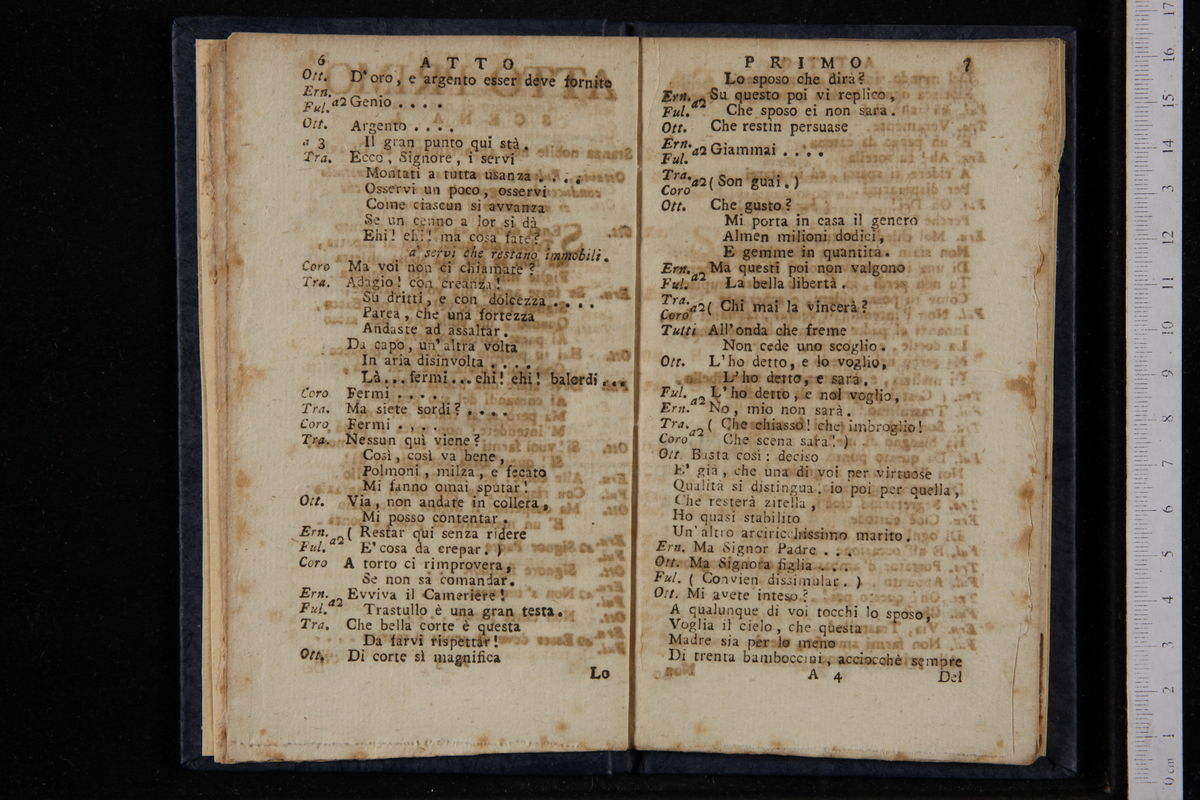 6 ATTO
Ott. D'oro, e argento esser deve fornito
Ern.
Ful. a2 Genio . . . .
Ott. Argento . . . .
a 3 Il gran punto qui stà.
Tra. Ecco, Signore, i servi
Montati a tutta usanza . . . .
Osservi un poco, osservi
Come ciascun si avvanza
Se un cenno a lor si dà
Ehi! ehi! ma cosa fate?
a' servi che restano immobili.
Coro Ma voi non ci chiamate?
Tra. Adagio! con creanza!
Su dritti, e con dolcezza . . . .
Parea, che una fortezza
Andaste ad assaltar.
Da capo, un'altra volta
In aria disinvolta . . . .
Là... fermi... ehi! ehi! balordi...
Coro Fermi . . . .
Tra. Ma siete sordi? . . . .
Coro Fermi . , . .
Tra. Nessun quì viene?
Così, così va bene,
Polmoni, milza, e fecato
Mi fanno omai sputar!
Ott. Via, non andate in collera,
Mi posso contentar.
Ern. a2 ( Restar qui senza ridere
Ful. E' cosa da crepar. )
Coro A torto ci rimprovera,
Se non sa comandar.
Ern. a2 Evviva il Cameriere!
Ful. Trastullo è una gran testa.
Tra. Che bella corte è questa
Da farvi rispettar!
Ott. Di corte sì magnifica
Lo
PRIMO 7
Lo sposo che dirà?
Ern. a2 Su questo poi vi replico,
Ful. Che sposo ei non sarà.
Ott. Che restin persuase
Ern. a2 Giammai . . . .
Ful.
Tra. a2 ( Son guai. )
Coro
Ott. Che gusto?
Mi porta in casa il genero
Almen milioni dodici,
E gemme in quantità.
Ern. a2 Ma questi poi non valgono
Ful. La bella libertà.
Tra. a2 ( Chi mai la vincerà?
Coro
Tutti All'onda che freme
Non cede uno scoglio.
Ott. L'ho detto, e lo voglio,
L'ho detto, e sarà.
Ful. a2 L'ho detto, e nol voglio,
Ern. No, mio non sarà.
Tra. a2 ( Che chiasso! che imbroglio!
Coro Che scena sarà! )
Ott Basta così: deciso
E' già, che una di voi per virtuose
Qualità si distingua. io poi per quella,
Che resterà zitella,
Ho quasi stabilito
Un'altro arciricchissimo marito.
Ern. Ma Signor Padre . . .
Ott. Ma Signora figlia . . .
Ful. ( Convien dissimular. )
Ott. Mi avete inteso?
A qualunque di voi tocchi lo sposo,
Voglia il cielo, che questa
Madre sia per lo meno
Di trenta bamboccini, acciocchè sempre
A 4 Del
0 cm 1 2 3 4 5 6 7 8 9 10 11 12 13 14 15 16 17